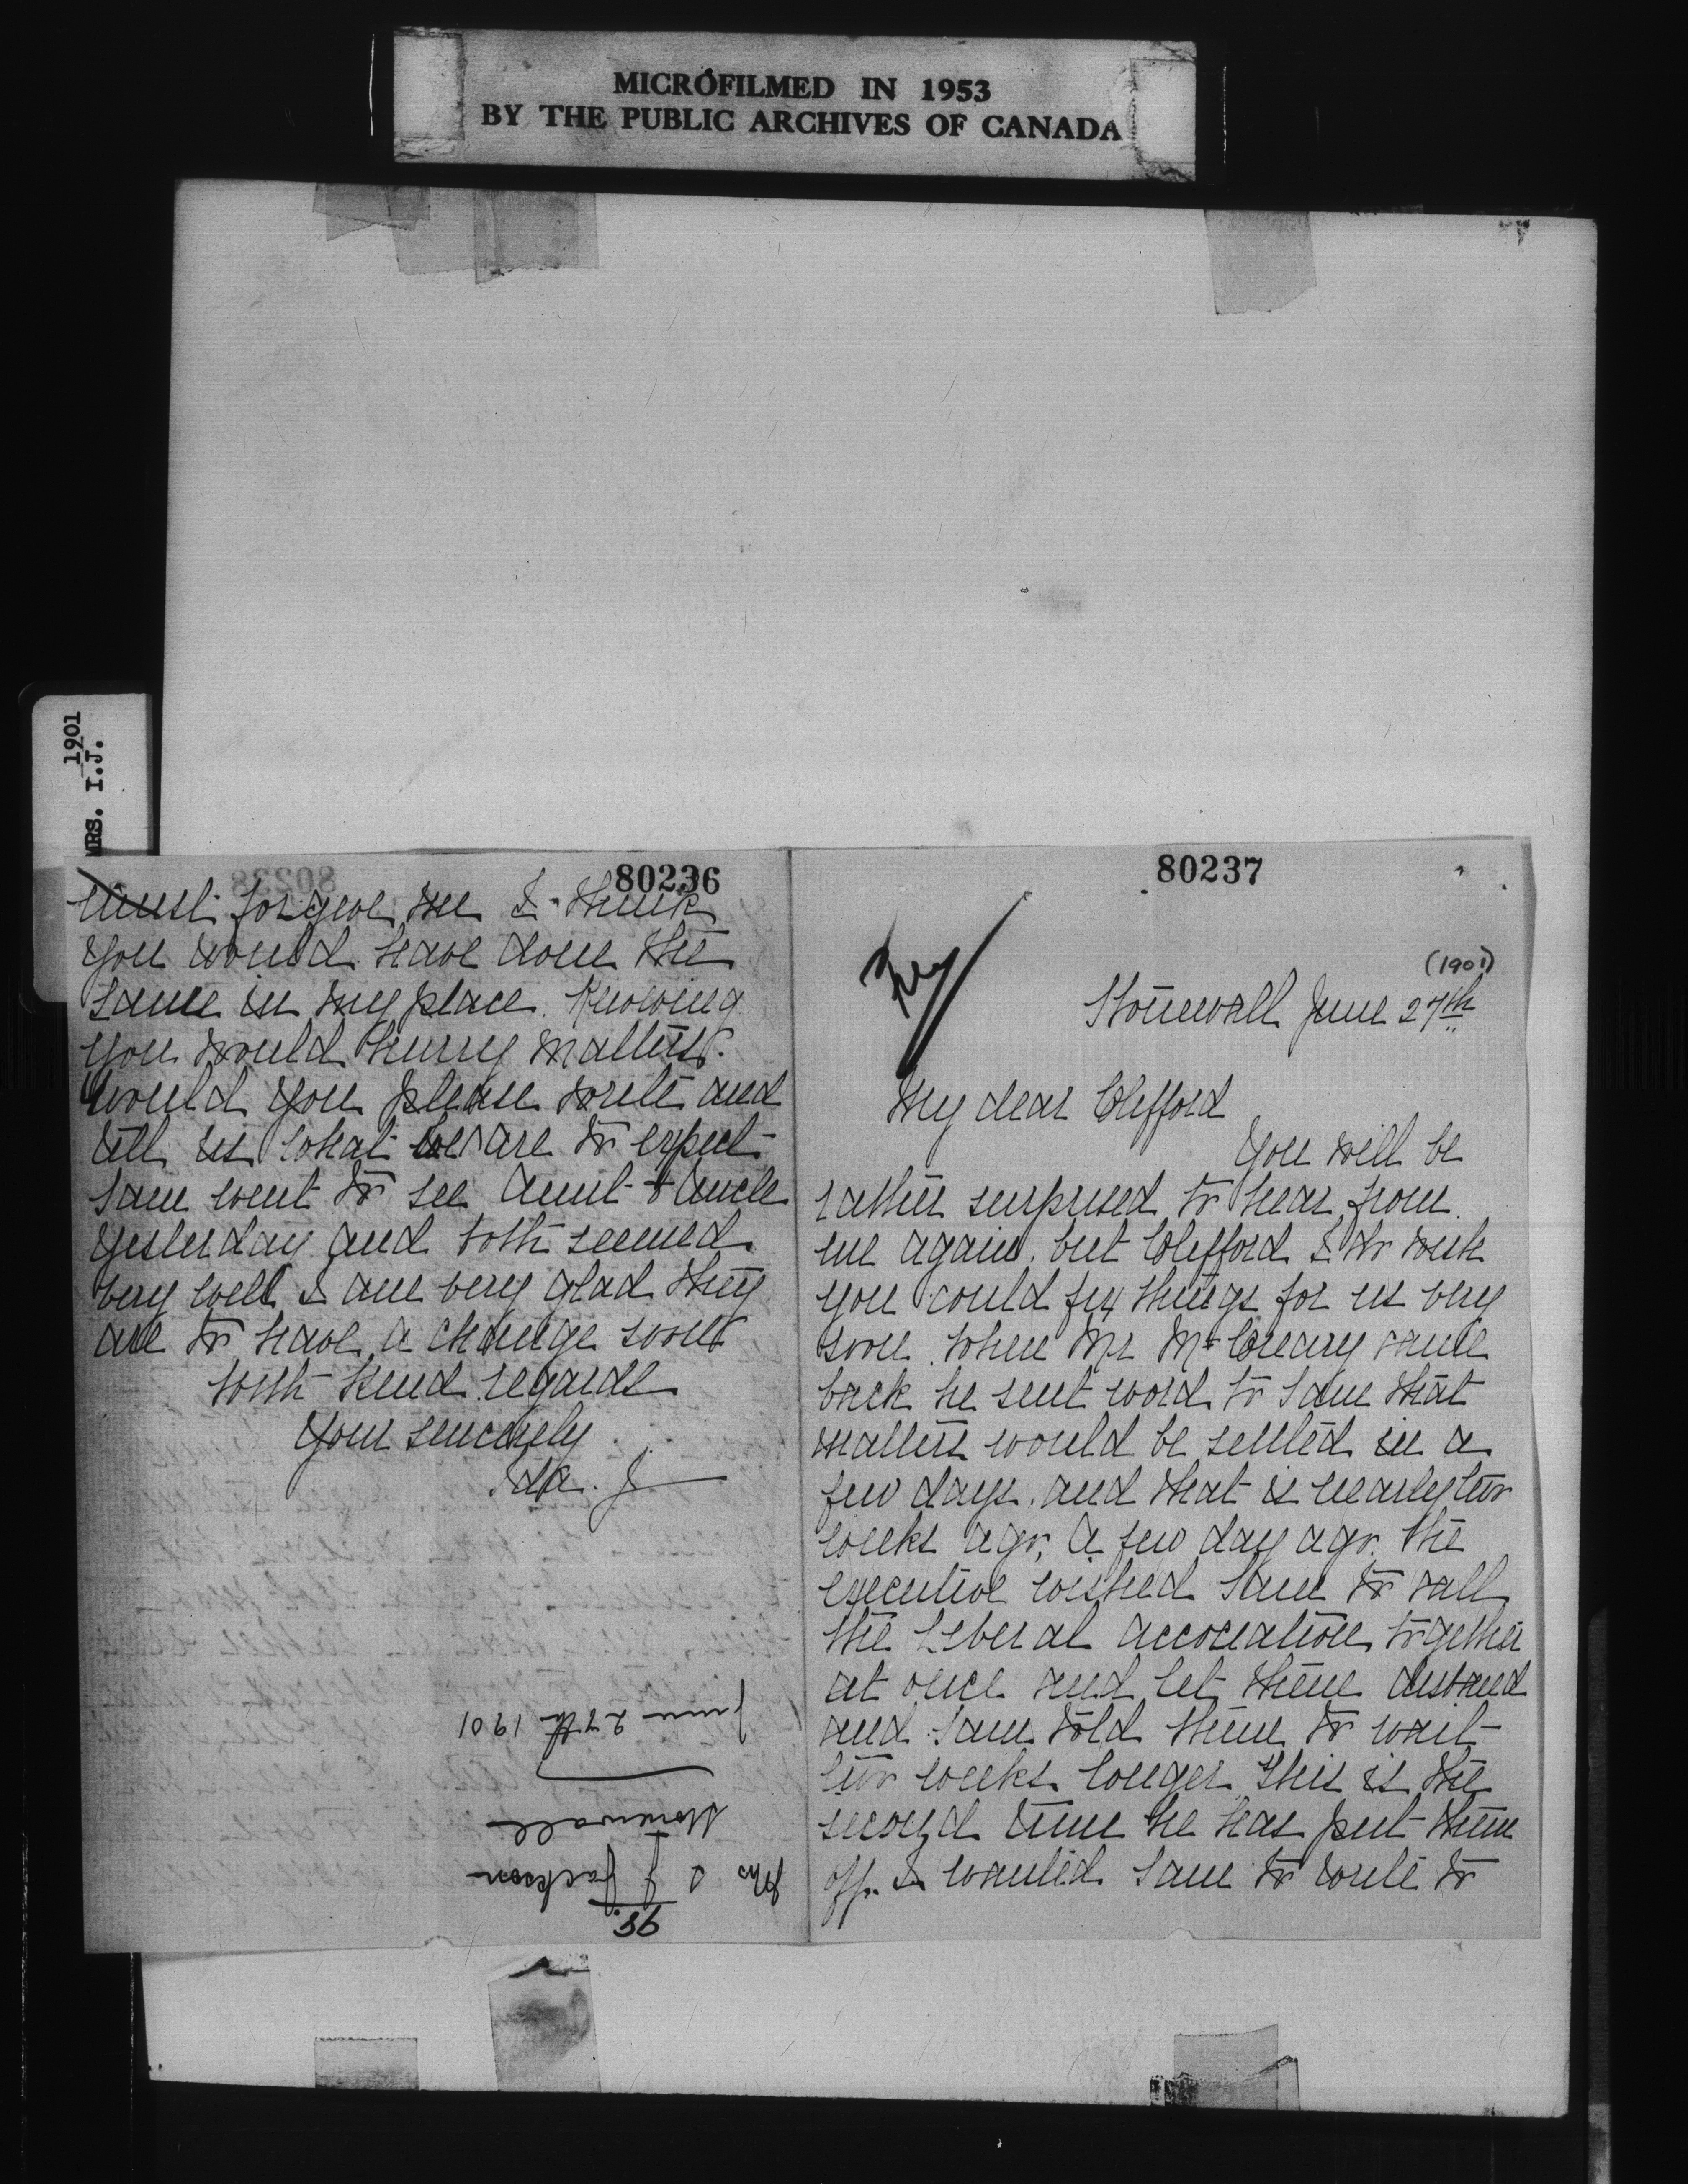 MICROFILMED IN 1953
BY THE PUBLIC ARCHIVES OF CANADA
1901
MRS. I.J.
80236
must forgive me I think
you would have done the
same in my place. Knowing
you would hurry matters.
Would you please write and
tell us what we are to expect
Sam went to see Aunt & Uncle
yesterday and both seemed
very well I am very glad they
are to have a change soon
With kind regards
Your sincerely
Ida. J
June 27th 1901
Stonewall
Mrs I J Jackson
80237
(1901)
Stonewall June 27th
My dear Clifford
You will be
rather surprised to hear from
me again, but Clifford I do wish
you could fix things for us very
soon. When Mr McCreary came
back he sent word to Sam that
matters would be settled in a
few days. and that is nearly two
weeks ago, A few day ago. the
executive wished Sam to call
the Liberal accociation together
at once and let them disband
and Sam told them to wait
two weeks longer This is the
second time he has put them
off. I wanted Sam to write to